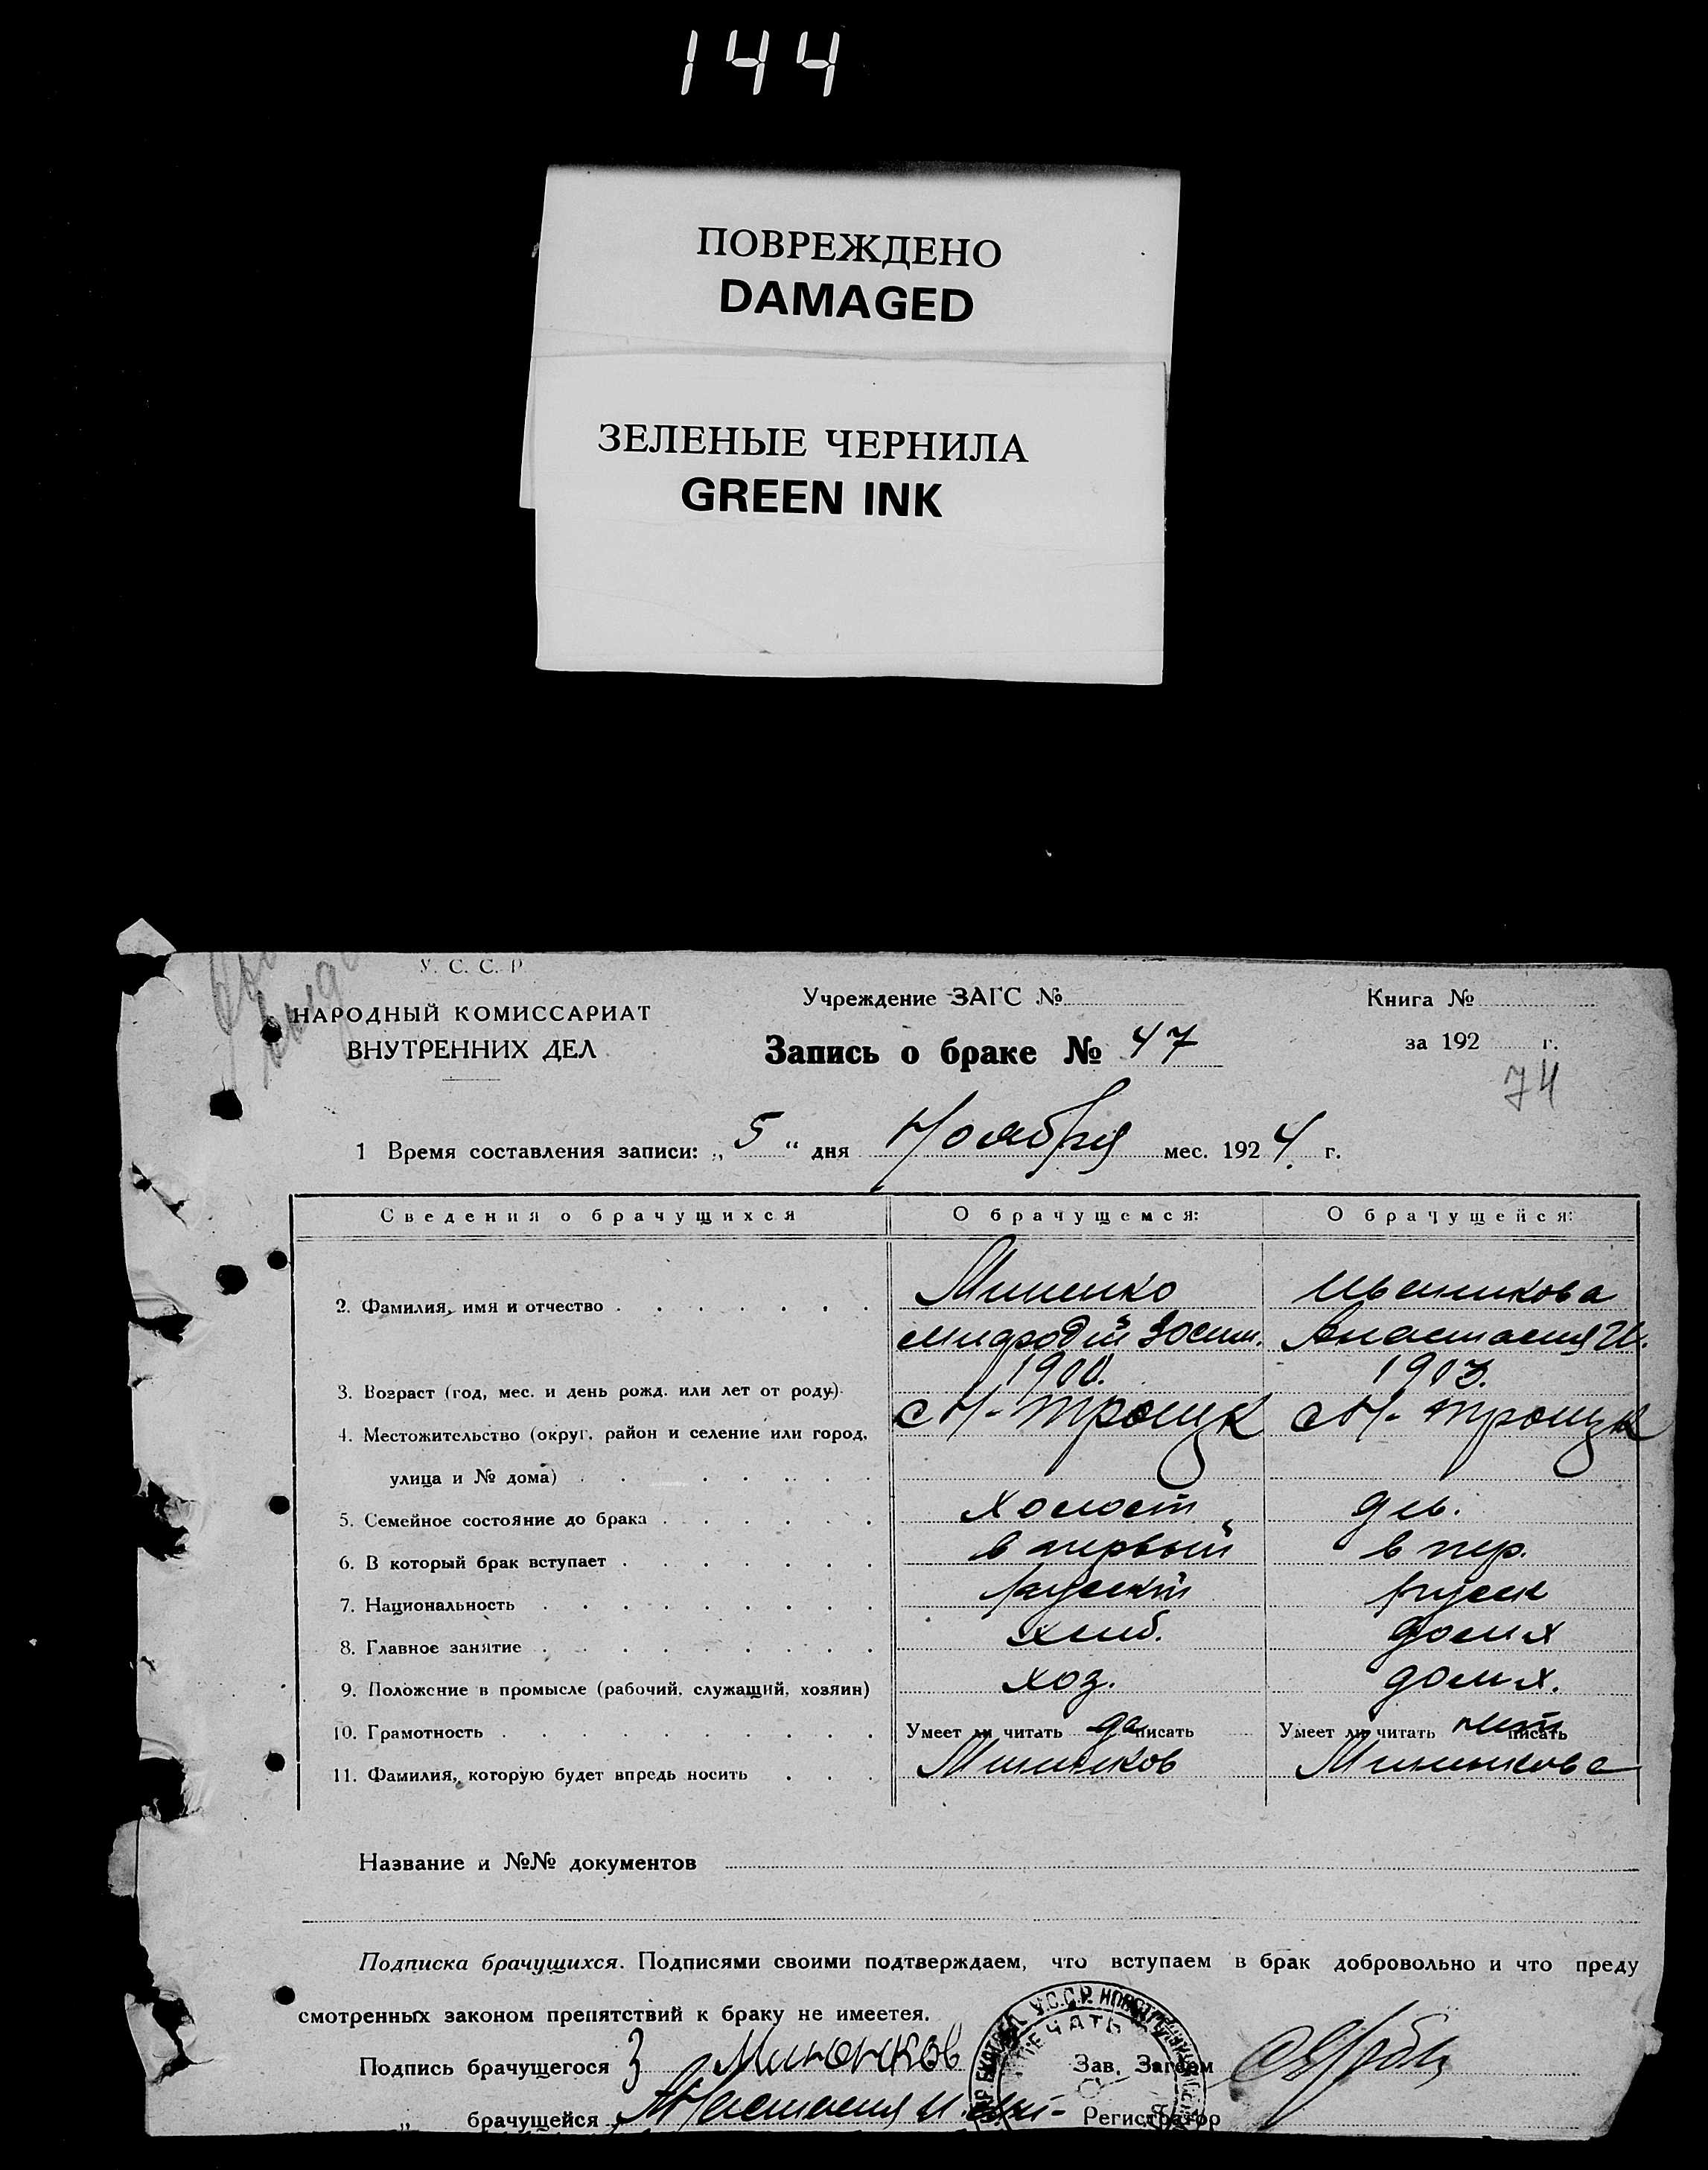 144
ПОВРЕЖДЕНО
DAMAGED
ЗЕЛЕНЫЕ ЧЕРНИЛА
GREEN INK
У. С. С. Р
НАРОДНЫЙ КОМИССАРИАТ
ВНУТРЕННИХ ДЕЛ
Учреждение ЗАГС №
Книга №
Запись о браке № 47
за 192 г.
74
1 Время составления записи: „ 5 “ дня Ноября мес. 1924 г.
Сведения о брачущихся О брачущемся: О брачущейся:
2. Фамилия, имя и отчество
1900. 1903.
3. Возраст (год, мес. и день рожд. или лет от роду)
с Н-Троицк с Н-Троицк
4. Местожительство (округ, район и селение или город,
улица и № дома)
5. Семейное состояние до брака холост дев.
6. В который брак вступает в первый в пер.
7. Национальность русский русск
8. Главное занятие хлиб. домх
9. Положение в промысле (рабочий, служащий, хозяин) хоз. домх.
10. Грамотность Умеет ли читать да писать Умеет ли читать нет писать
11. Фамилия, которую будет впредь носить
Название и №№ документов
Подписка брачущихся. Подписями своими подтверждаем, что вступаем в брак добровольно и что преду
смотренных законом препятствий к браку не имеется.
Подпись брачущегося Зав. Загсом
„ брачущейся Регистратор
У.С.С.Р.
ПЕЧАТЬ